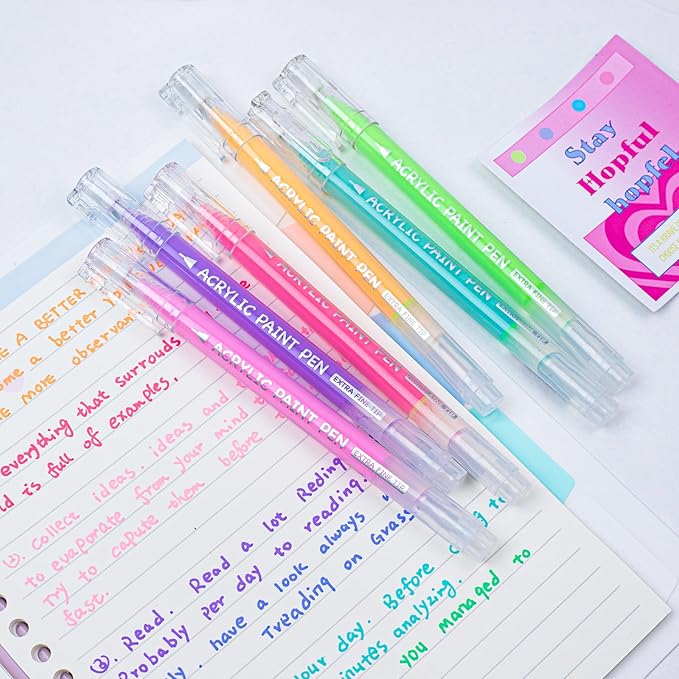 ACRYLIC PAINT PEN EXTRA FINE TIP
ACRYLIC PAINT PEN
ACRYLIC PAINT PEN EXTRA FINE TIP
ACRYLIC PAINT PEN EXTRA FINE TIP
ACRYLIC PAINT PEN
ACRYLIC PAINT PEN EXTRA FINE TIP
Stay
Hopful
hopfel
A BETTER
a better
more observan
everything that surrounds
is full of examples.
collect ideas. ideas and
to evaporate from your mind
try to capute them before
fast.
③. Read. Read a lot Reding
Probably per day to reading.
have a look always
Treading on Grass
your day. Before
minutes analyzing.
you managed to